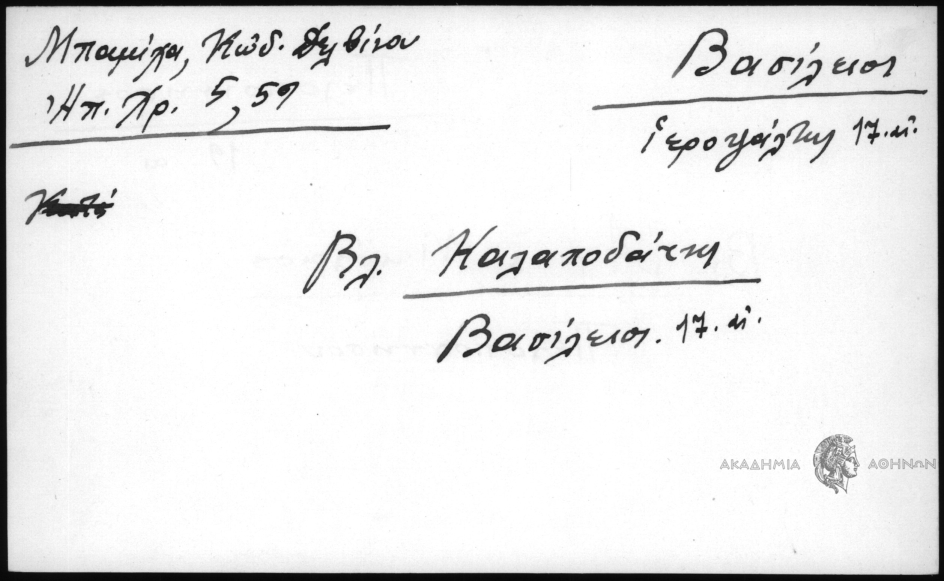 Μπαμίχα, Κώδ. Δελβίνου
Ἠπ. Χρ. 5, 59
Βασίλειος
ἱεροψάλτης 17. αἰ.
Βλ. Καλαποδάτης
Βασίλειος. 17. αἰ.
ΑΚΑΔΗΜΙΑ ΑΘΗΝΩΝ